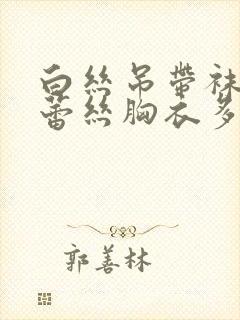 白丝吊帶袜
蕾丝胸衣多
郭善林